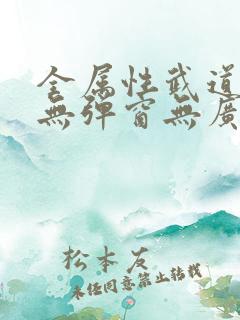 全属性武道
無弹窗無廣
松本友
未经同意禁止转载